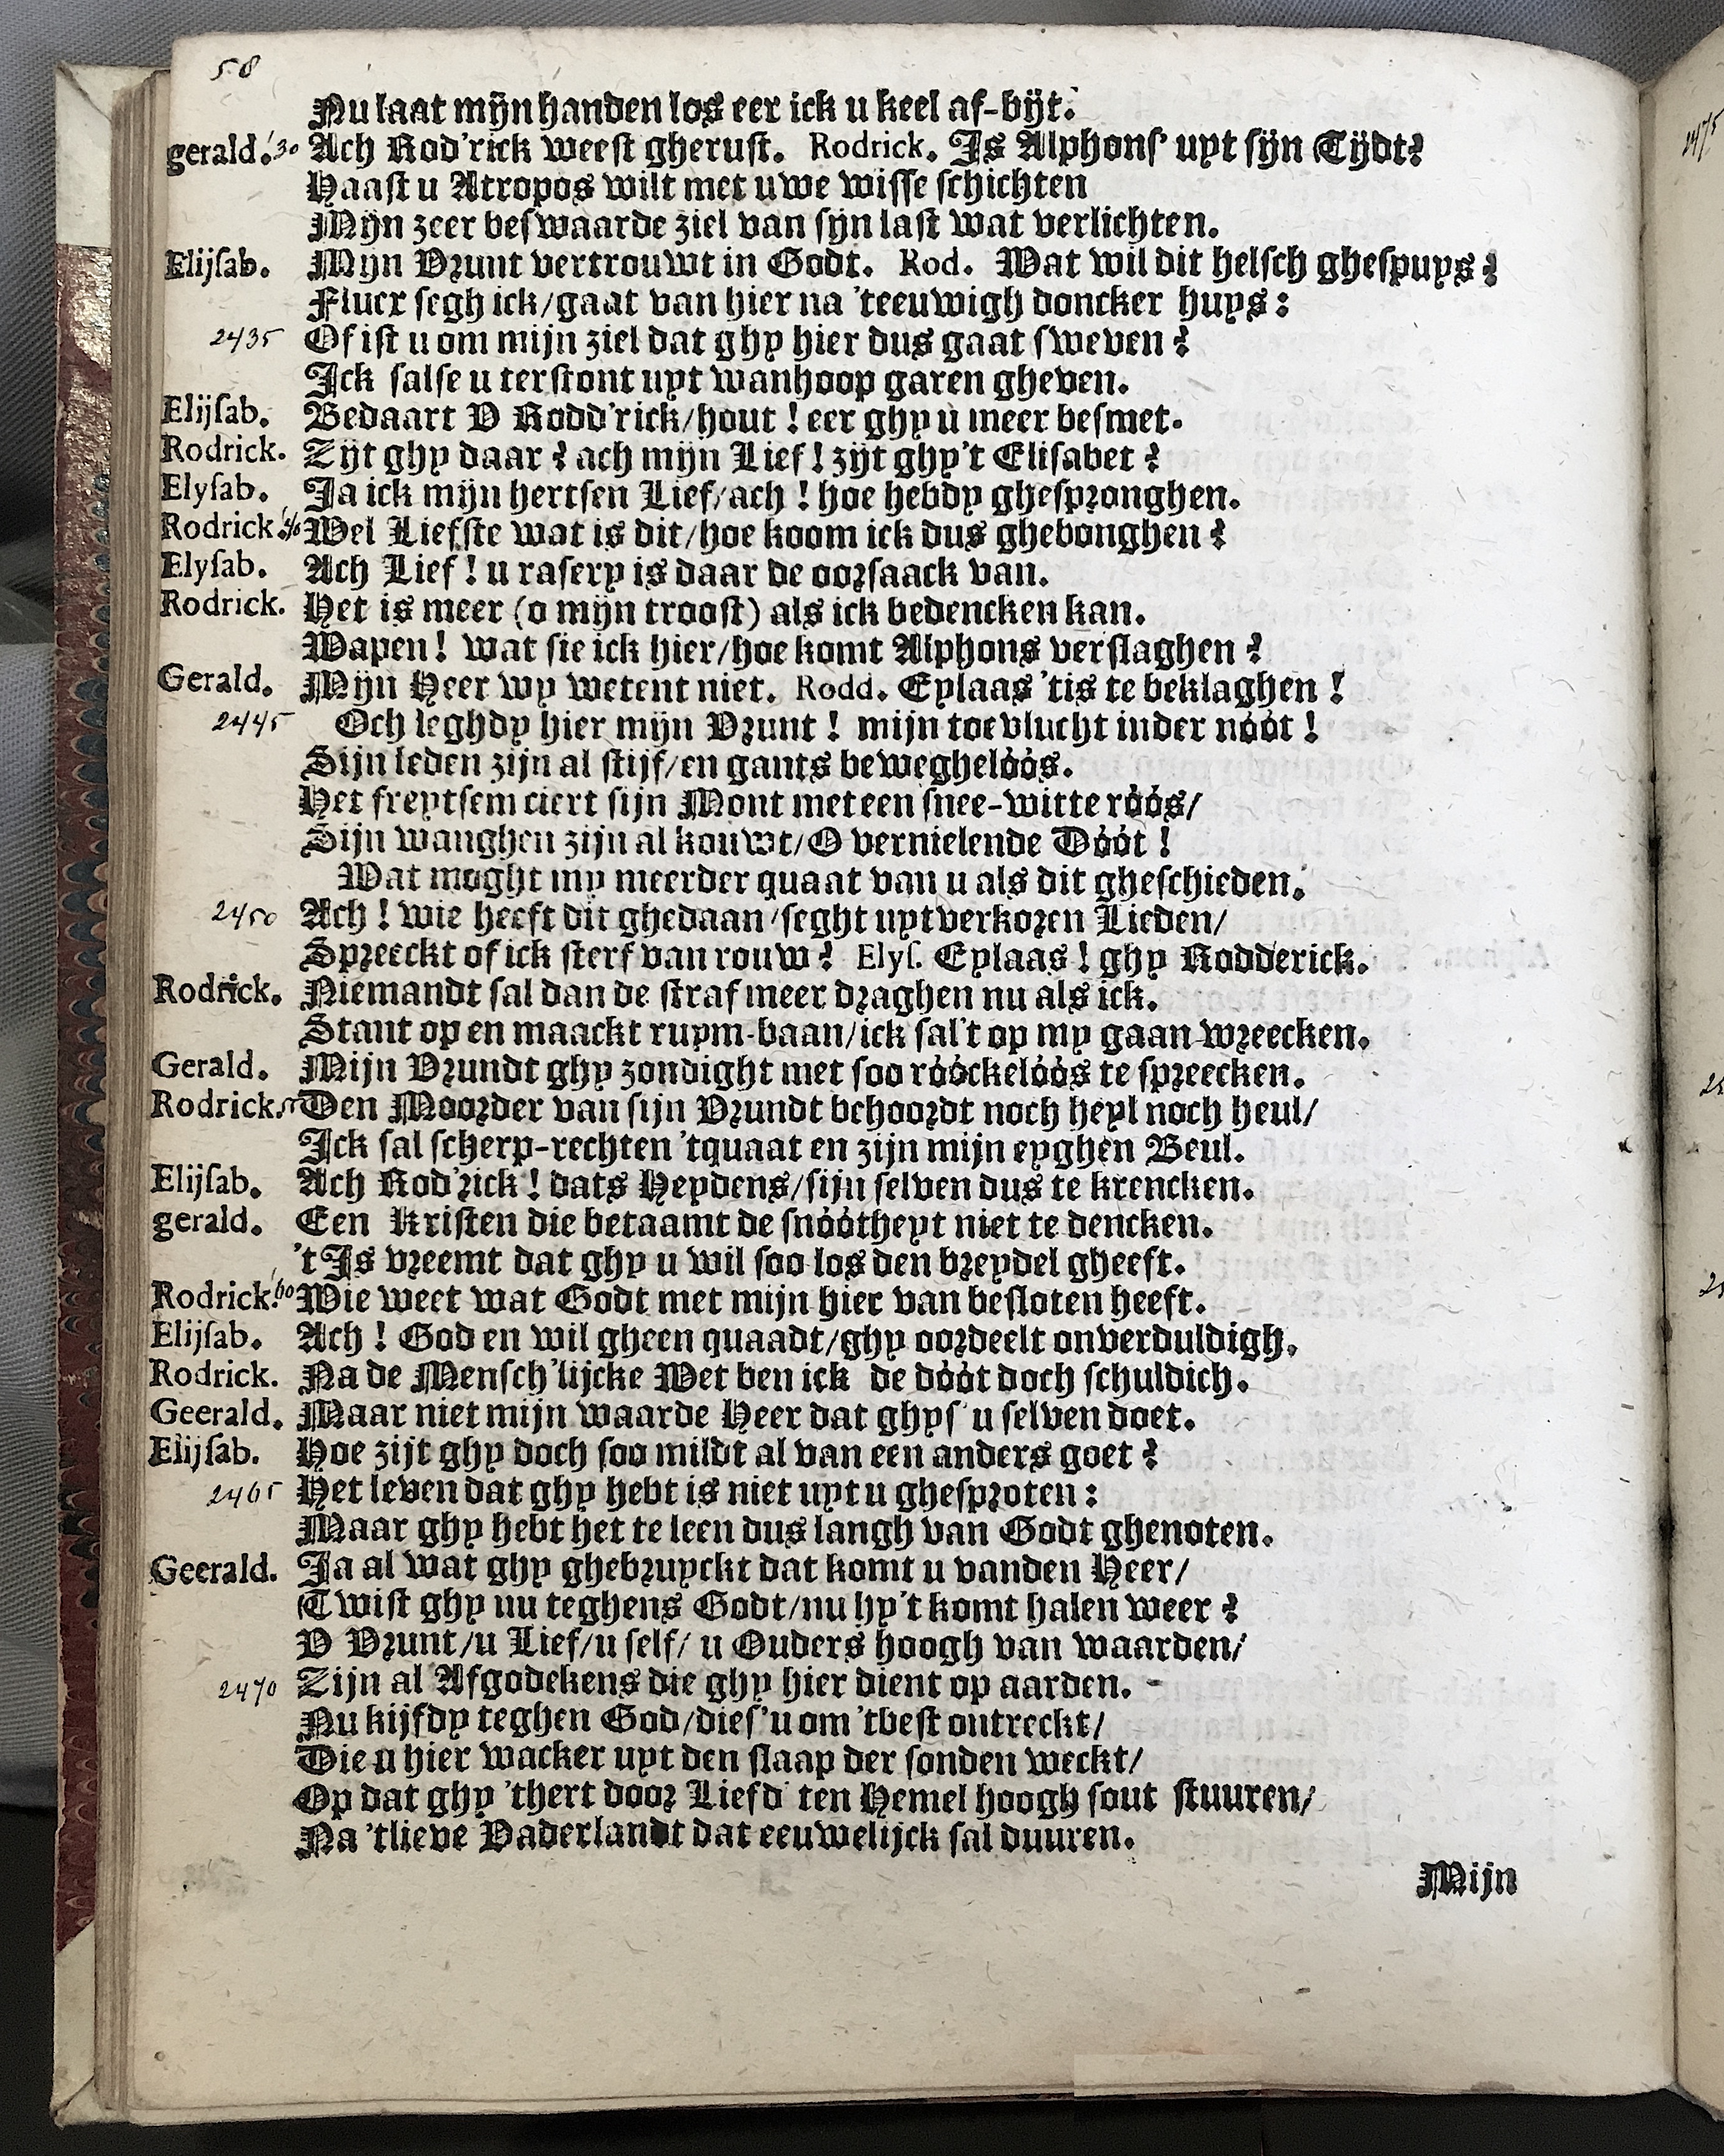 58
Nu laat mijn handen los eer ick u keel af-bijt.
gerald. '30 Ach Rod'rick weest gherust. Rodrick. Is Alphons' uyt sijn Tijdt?
Haast u Atropos wilt met uwe wisse schichten
Mijn zeer beswaarde ziel van sijn last wat verlichten.
Elijsab. Mijn Vrunt vertrouwt in Godt. Rod. Wat wil dit helsch ghespuys?
Flucx segh ick/gaat van hier na 'teeuwigh doncker huys:
2435 Of ist u om mijn ziel dat ghy hier dus gaat sweven?
Ick salse u terstont uyt wanhoop garen gheven.
Elijsab. Bedaart O Rodd'rick/hout! eer ghy u meer besmet.
Rodrick. Zijt ghy daar? ach mijn Lief! zijt ghy't Elisabet?
Elysab. Ja ick mijn hertsen Lief/ach! hoe hebdy ghespronghen.
Rodrick. '40 Wel Liefste wat is dit/hoe koom ick dus ghebonghen?
Elysab. Ach Lief! u rasery is daar de oorsaack van.
Rodrick. Het is meer (o mijn troost) als ick bedencken kan.
Wapen! wat sie ick hier/hoe komt Alphons verslaghen?
Gerald. Mijn Heer wy wetent niet. Rodd. Eylaas 'tis te beklaghen!
2445 Och leghdy hier mijn Vrunt! mijn toevlucht inder nóót!
Sijn leden zijn al stijf/en gants beweghelóós.
Het freytsem ciert sijn Mont met een snee-witte róós/
Sijn wanghen zijn al kouwt/O vernielende Dóót!
Wat moght my meerder quaat van u als dit gheschieden.
2450 Ach! wie heeft dit ghedaan/seght uytverkoren Lieden/
Spreeckt of ick sterf van rouw? Elys. Eylaas! ghy Rodderick.
Rodrick. Niemandt sal dan de straf meer draghen nu als ick.
Stant op en maackt ruym-baan/ick sal't op my gaan wreecken.
Gerald. Mijn Vrundt ghy zondight met soo róóckelóós te spreecken.
Rodrick. Den Moorder van sijn Vrundt behoordt noch heyl noch heul/
Ick sal scherp-rechten 'tquaat en zijn mijn eyghen Beul.
Elijsab. Ach Rod'rick! dats Heydens/sijn selven dus te krencken.
gerald. Een Kristen die betaamt de snóótheyt niet te dencken.
't Is vreemt dat ghy u wil soo los den breydel gheeft.
Rodrick. '60 Wie weet wat Godt met mijn hier van besloten heeft.
Elijsab. Ach! God en wil gheen quaadt/ghy oordeelt onverduldigh.
Rodrick. Na de Mensch'lijcke Wet ben ick de dóót doch schuldich.
Geerald. Maar niet mijn waarde Heer dat ghys' u selven doet.
Elijsab. Hoe zijt ghy doch soo mildt al van een anders goet?
2465 Het leven dat ghy hebt is niet uyt u ghesproten:
Maar ghy hebt het te leen dus langh van Godt ghenoten.
Geerald. Ja al wat ghy ghebruyckt dat komt u vanden Heer/
Twist ghy nu teghens Godt/nu hy't komt halen weer?
O Vrunt/u Lief/u self/ u Ouders hoogh van waarden/
2470 Zijn al Afgodekens die ghy hier dient op aarden. -
Nu kijfdy teghen God/dies'u om 'tbest ontreckt/
Die u hier wacker uyt den slaap der sonden weckt/
Op dat ghy 'thert door Liefd' ten Hemel hoogh sout stuuren/
Na 'tlieve Vaderlandt dat eeuwelijck sal duuren.
Mijn
2475